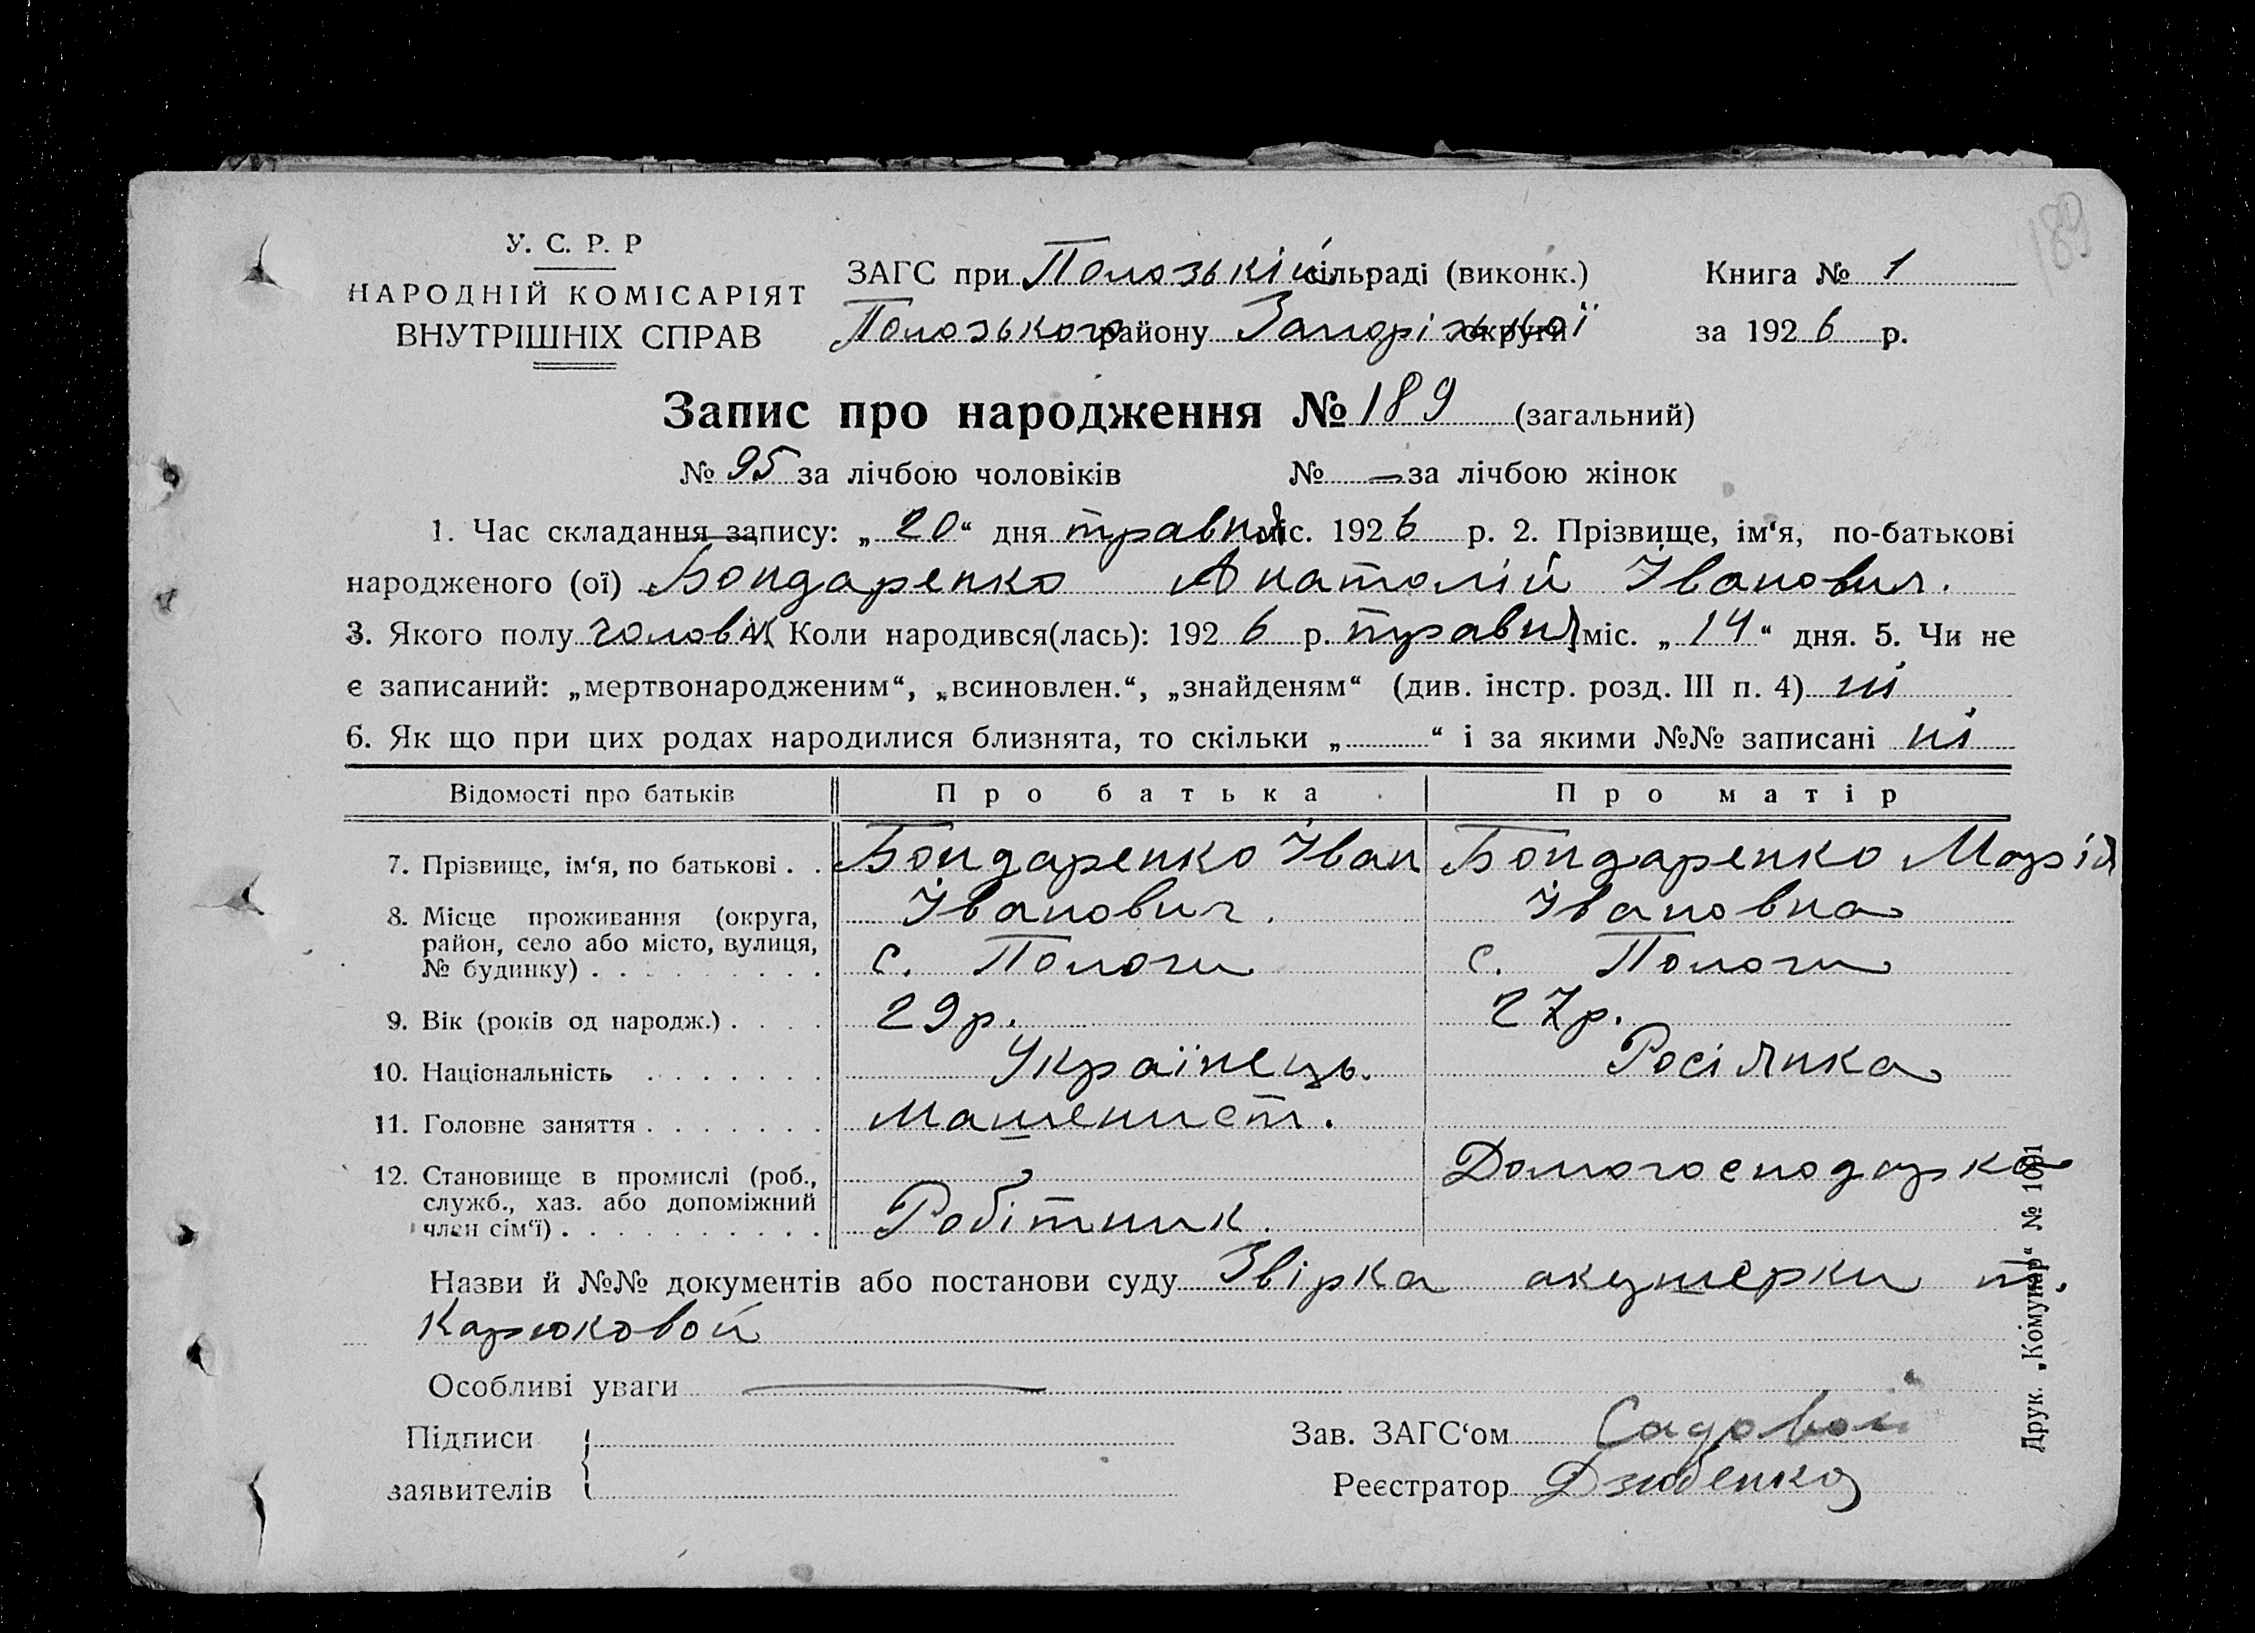 189
У. С. Р. Р
НАРОДНІЙ КОМІСАРІЯТ
ВНУТРІШНІХ СПРАВ
ЗАГС при Полозькій сільраді (виконк.) Книга № 1
Полозького району Запорізької округи за 1926 р.
Запис про народження № 189 (загальний)
№ 95 за лічбою чоловіків № — за лічбою жінок
1. Час складання запису: „20“ дня травня міс. 1926 р. 2. Прізвище, ім‘я, по-батькові
народженого (ої) Бондаренко Анатолій Іванович.
3. Якого полу чоловік Коли народився(лась): 1926 р. травня міс. „14“ дня. 5. Чи не
є записаний: „мертвонародженим“, „всиновлен.“, „знайденям“ (див. інстр. розд. III п. 4) ні
6. Як що при цих родах народилися близнята, то скільки „ “ і за якими №№ записані ні
Відомості про батьків Про батька Про матір
7. Прізвище, ім‘я, по батькові . . Бондаренко Іван Бондаренко Марія
Іванович. Івановна
8. Місце проживання (округа,
район, село або місто, вулиця,
№ будинку) . . . . . . . . . с. Пологи с. Пологи
9. Вік (років од народж.) . . . . 29 р. 27 р.
10. Національність . . . . . . . Українець. Росіянка
11. Головне заняття . . . . . . . Машенист.
12. Становище в промислі (роб.,
служб., хаз. або допоміжний
член сім‘ї) . . . . . . . . . . Робітник. Домогосподарка
Назви й №№ документів або постанови суду Звірка акушерки т.
Карюковой
Особливі уваги
Підписи
заявителів
Зав. ЗАГС‘ом Садовой
Реєстратор Дзюбенко
Друк. „Комунар“ № 1091